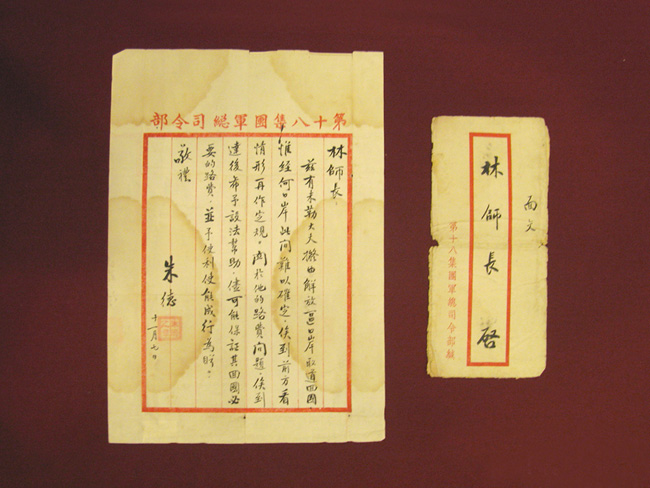 第十八集團軍總司令部
林師長：
茲有米勒大夫擬由解放區口岸取道回國，
惟經何口岸此間難以確定，俟到前方看
情形再作定規。關於他的路費問題，俟到
達後希予設法幫助，儘可能保証其回國必
要的路費，並予便利使能成行為盼。
敬禮
朱德
十一月 日
面交
林師長 啓
第十八集團軍總司令部緘